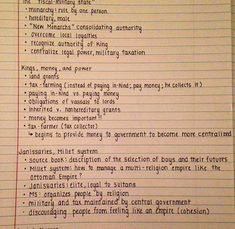 The "Fiscal-Military State"
• monarchy: rule by one person
• hereditary, male
• "New Monarchs" consolidating authority
• overcome local loyalties
• recognize authority of King
• centralize legal power, military taxation
Kings, money, and power
• land grants
• tax-farming (instead of paying in-kind; pay money; he collects it)
• paying in-kind vs. paying money
• obligations of vassals to lords
• inherited v. nonhereditary grants
• money becomes important!!
• tax-farmer (tax collector)
↳ begins to provide money to government to become more centralized
Janissaries, Millet system
• Source book: description of the selection of boys and their futures
• Millet system: how to manage a multi-religion empire like the
Ottoman Empire?
• Janissaries: elite, legal to sultans
• MS: organizes people by religion
• military and tax maintained by central government
• discouraging people from feeling like an empire (cohesion)